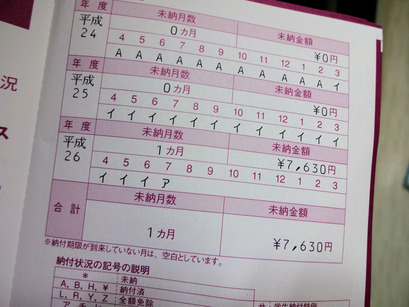 年度 未納月数 未納金額
平成24 0カ月 ¥0円
4 5 6 7 8 9 10 11 12 1 2 3
A A A A A A A A A A A イ
平成25 未納月数 未納金額
0カ月 ¥0円
4 5 6 7 8 9 10 11 12 1 2 3
イ イ イ イ イ イ イ イ イ イ イ イ
年度 未納月数 未納金額
平成26 1カ月 ¥7,630円
4 5 6 7 8 9 10 11 12 1 2 3
イ イ イ ア
合計 未納月数 未納金額
1カ月 ¥7,630円
※納付期限が到来していない月は、空白としています。
納付状況の記号の説明
* 未納
A, B, H, ¥ 納付済
L, R, Y, Z 全額免除
況
ス